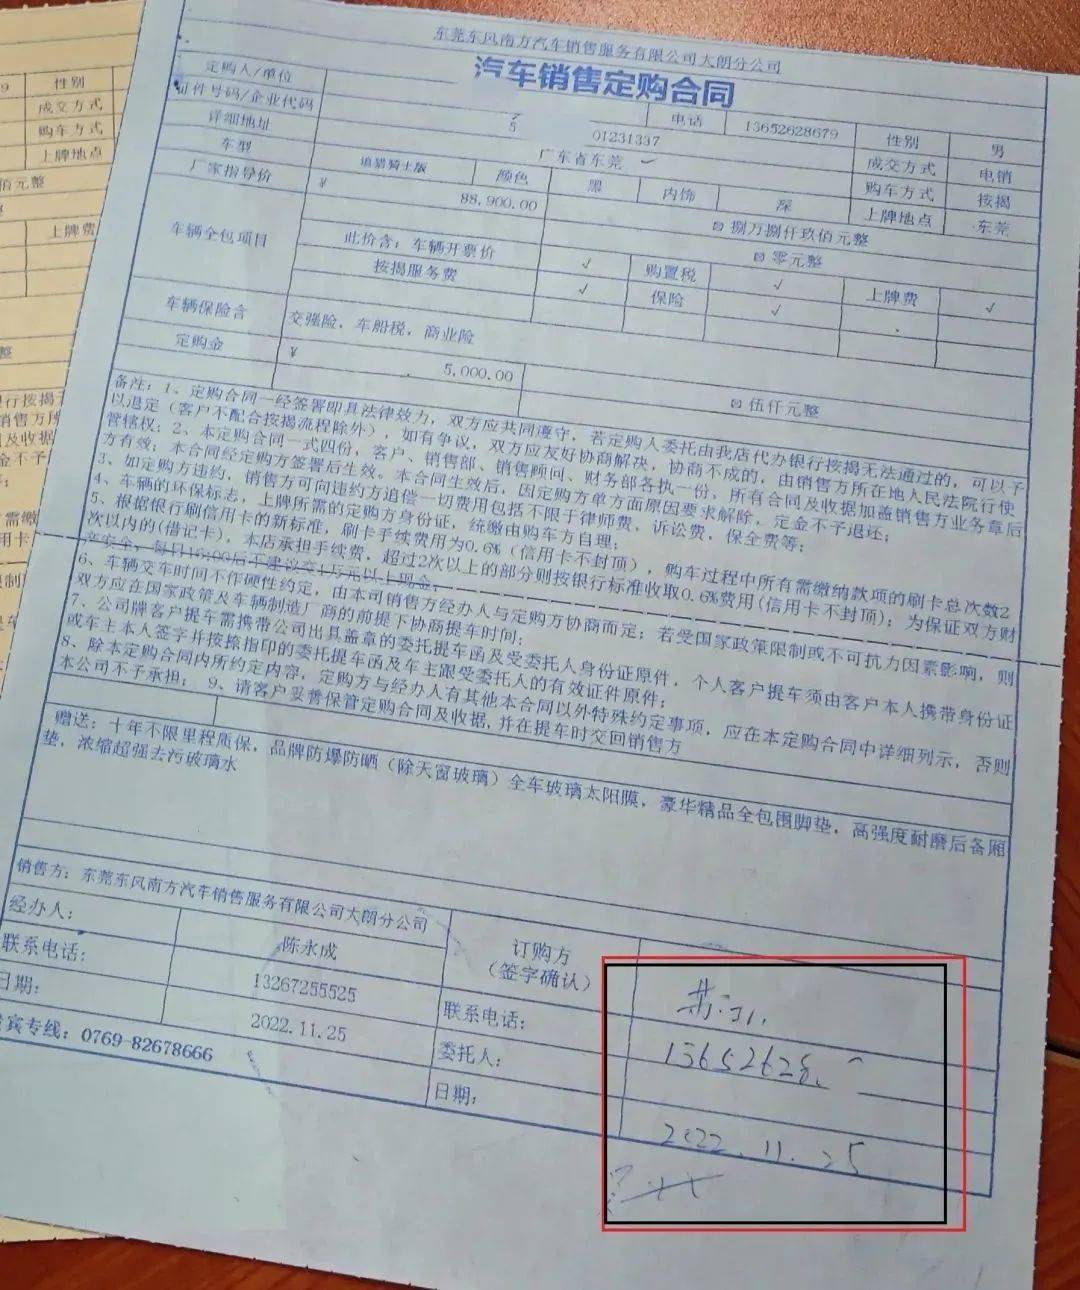 东莞东风南方汽车销售服务有限公司大朗分公司
汽车销售定购合同
定购人/单位 电话 13652628679 性别 男
证件号码/企业代码 5 01231337 成交方式 电销
详细地址 广东省东莞 购车方式 按揭
车型 追猎骑士版 颜色 黑 内饰 深 上牌地点 东莞
厂家指导价 ¥ 88,900.00 捌万捌仟玖佰元整
零元整
车辆全包项目 此价含：车辆开票价 √ 购置税 √ 上牌费 √
按揭服务费 √ 保险 √
车辆保险含 交强险，车船税，商业险
定购金 ¥ 5,000.00 伍仟元整
备注：1、定购合同一经签署即具法律效力，双方应共同遵守，若定购人委托由我店代办银行按揭无法通过的，可以予
以退定（客户不配合按揭流程除外），如有争议，双方应友好协商解决，协商不成的，由销售方所在地人民法院行使
管辖权；2、本定购合同一式四份，客户、销售部、销售顾问、财务部各执一份，所有合同及收据加盖销售方业务章后
方有效；本合同经定购方签署后生效。本合同生效后，因定购方单方面原因要求解除，定金不予退还；
3、如定购方违约，销售方可向违约方追偿一切费用包括不限于律师费、诉讼费，保全费等；
4、车辆的环保标志，上牌所需的定购方身份证，统缴由购车方自理；
5、根据银行刷信用卡的新标准，刷卡手续费用为0.6%（信用卡不封顶），购车过程中所有需缴纳款项的刷卡总次数2
次以内的(借记卡)，本店承担手续费，超过2次以上的部分则按银行标准收取0.6%费用(信用卡不封顶)；为保证双方财
产安全，每日16:00后不建议交1万元以上现金；
6、车辆交车时间不作硬性约定，由本司销售方经办人与定购方协商而定；若受国家政策限制或不可抗力因素影响，则
双方应在国家政策及车辆制造厂商的前提下协商提车时间；
7、公司牌客户提车需携带公司出具盖章的委托提车函及受委托人身份证原件，个人客户提车须由客户本人携带身份证
或车主本人签字并按捺指印的委托提车函及车主跟受委托人的有效证件原件；
8、除本定购合同内所约定内容，定购方与经办人有其他本合同以外特殊约定事项，应在本定购合同中详细列示，否则
本公司不予承担； 9、请客户妥善保管定购合同及收据,并在提车时交回销售方
赠送：十年不限里程质保，品牌防爆防晒（除天窗玻璃）全车玻璃太阳膜，豪华精品全包围脚垫，高强度耐磨后备厢
垫，浓缩超强去污玻璃水
销售方：东莞东风南方汽车销售服务有限公司大朗分公司
经办人： 陈永成 订购方
（签字确认）
联系电话： 13267255525 联系电话： 13652628
日期： 2022.11.25 委托人：
宾专线：0769-82678666 日期： 2022.11.25
性别
成交方式
购车方式
上牌地点
佰元整
上牌费